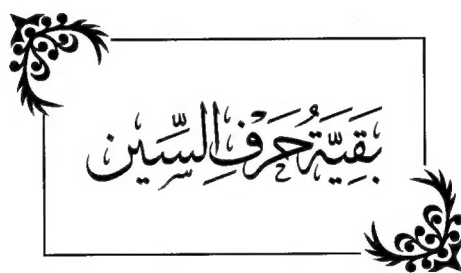 بَقِيَّة حَرْفِ السِّين